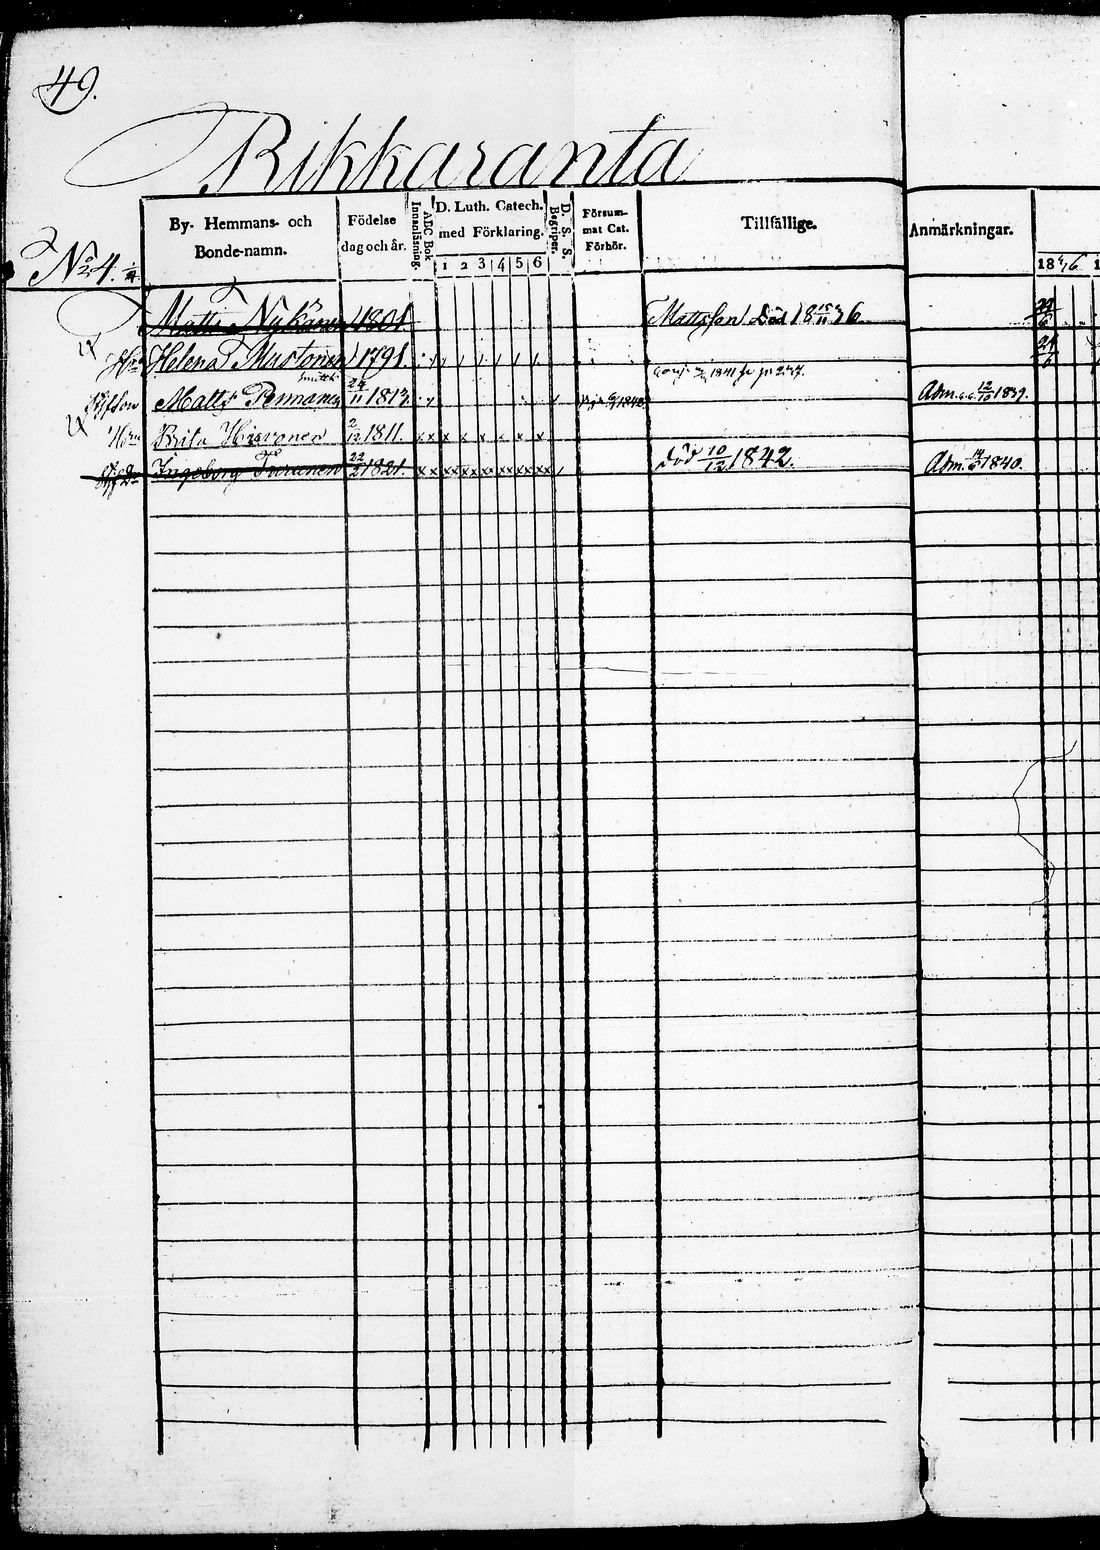 49.
Rikkaranta
No 4.
By- Hemmans- och Bonde-namn.
Födelse dag och år.
ABC Bok Innanläsning.
D. Luth. Catech. med Förklaring.
1 2 3 4 5 6
D. S. S. Begriper.
Försummat Cat. Förhör.
Tillfällige.
Anmärkningar.
18
Matts Nykänen 1801 Mattsson Död 18 15/11 36
Hru Helena Mustonen 1791.
Matts Pennanen 24/11 1813. Adm. 12/10 1839.
Hru Brita Hirvonen 2/12 1811.
Ingeborg Turunen 22/2 1821. död 10/12 1842. Adm. 1840.